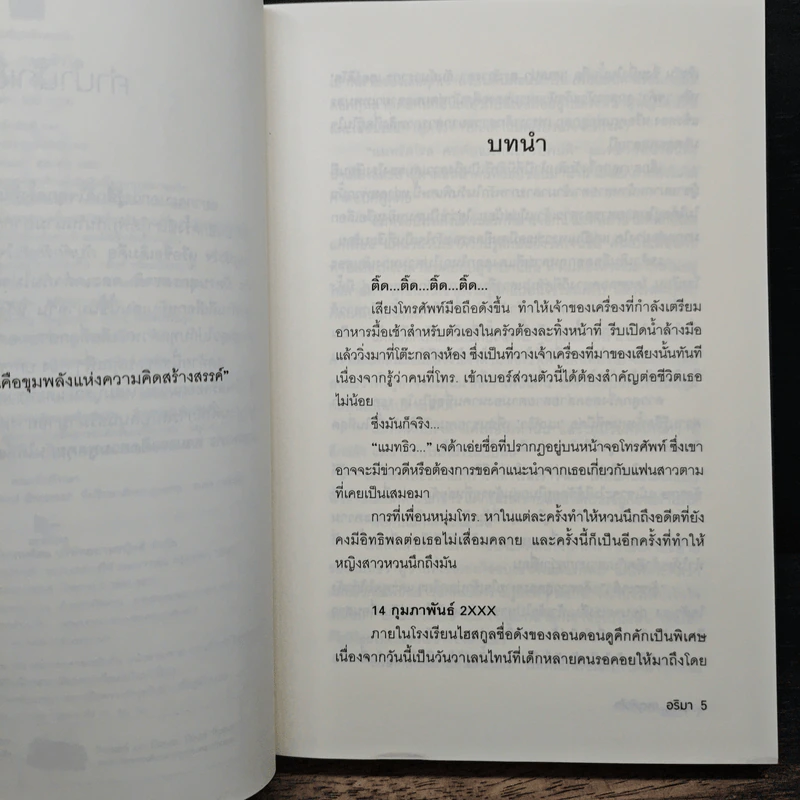 คือขุมพลังแห่งความคิดสร้างสรรค์”
บทนำ
ติ๊ด...ติ๊ด...ติ๊ด...ติ๊ด...
เสียงโทรศัพท์มือถือดังขึ้น ทำให้เจ้าของเครื่องที่กำลังเตรียม
อาหารมื้อเช้าสำหรับตัวเองในครัวต้องละทิ้งหน้าที่ รีบเปิดน้ำล้างมือ
แล้ววิ่งมาที่โต๊ะกลางห้อง ซึ่งเป็นที่วางเจ้าเครื่องที่มาของเสียงนั้นทันที
เนื่องจากรู้ว่าคนที่โทร. เข้าเบอร์ส่วนตัวนี้ได้ต้องสำคัญต่อชีวิตเธอ
ไม่น้อย
ซึ่งมันก็จริง...
“แมทธิว...” เจด้าเอ่ยชื่อที่ปรากฏอยู่บนหน้าจอโทรศัพท์ ซึ่งเขา
อาจจะมีข่าวดีหรือต้องการขอคำแนะนำจากเธอเกี่ยวกับแฟนสาวตาม
ที่เคยเป็นเสมอมา
การที่เพื่อนหนุ่มโทร. หาในแต่ละครั้งทำให้หวนนึกถึงอดีตที่ยัง
คงมีอิทธิพลต่อเธอไม่เสื่อมคลาย และครั้งนี้ก็เป็นอีกครั้งที่ทำให้
หญิงสาวหวนนึกถึงมัน
14 กุมภาพันธ์ 2XXX
ภายในโรงเรียนไฮสกูลชื่อดังของลอนดอนดูคึกคักเป็นพิเศษ
เนื่องจากวันนี้เป็นวันวาเลนไทน์ที่เด็กหลายคนรอคอยให้มาถึงโดย
อริมา 5